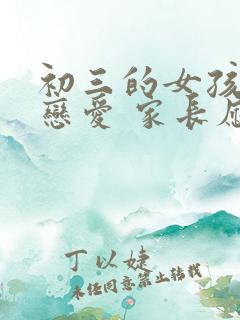 初三的女孩
戀愛 家長
丁以婕
未经同意禁止转载